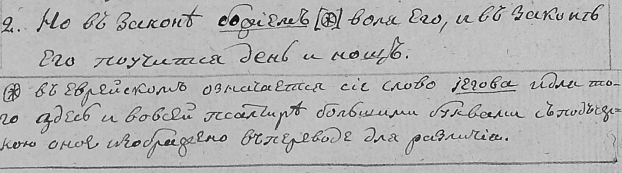 2. Но въ Законѣ [⊛] воля Его, и въ Законѣ
Его поучится день и нощь.
⊛ въ Еврейскомъ означается сіе слово Іегова и для то-
го здесь и во всей псалтирѣ большими буквами съ
кою оное изображено въ переводе для различія.